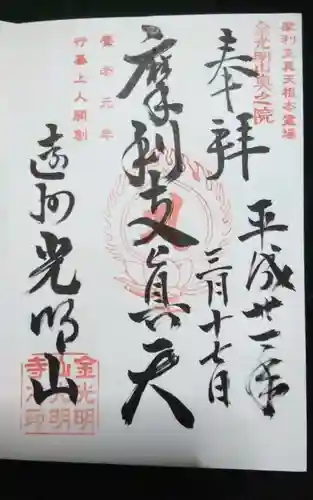 摩利支真天根本霊場
金光明山奥之院
奉拝
平成廿一年
三月十七日
摩利支真天
養老元年
行基上人開創
遠州光明山
金光明
山光明
寺之印